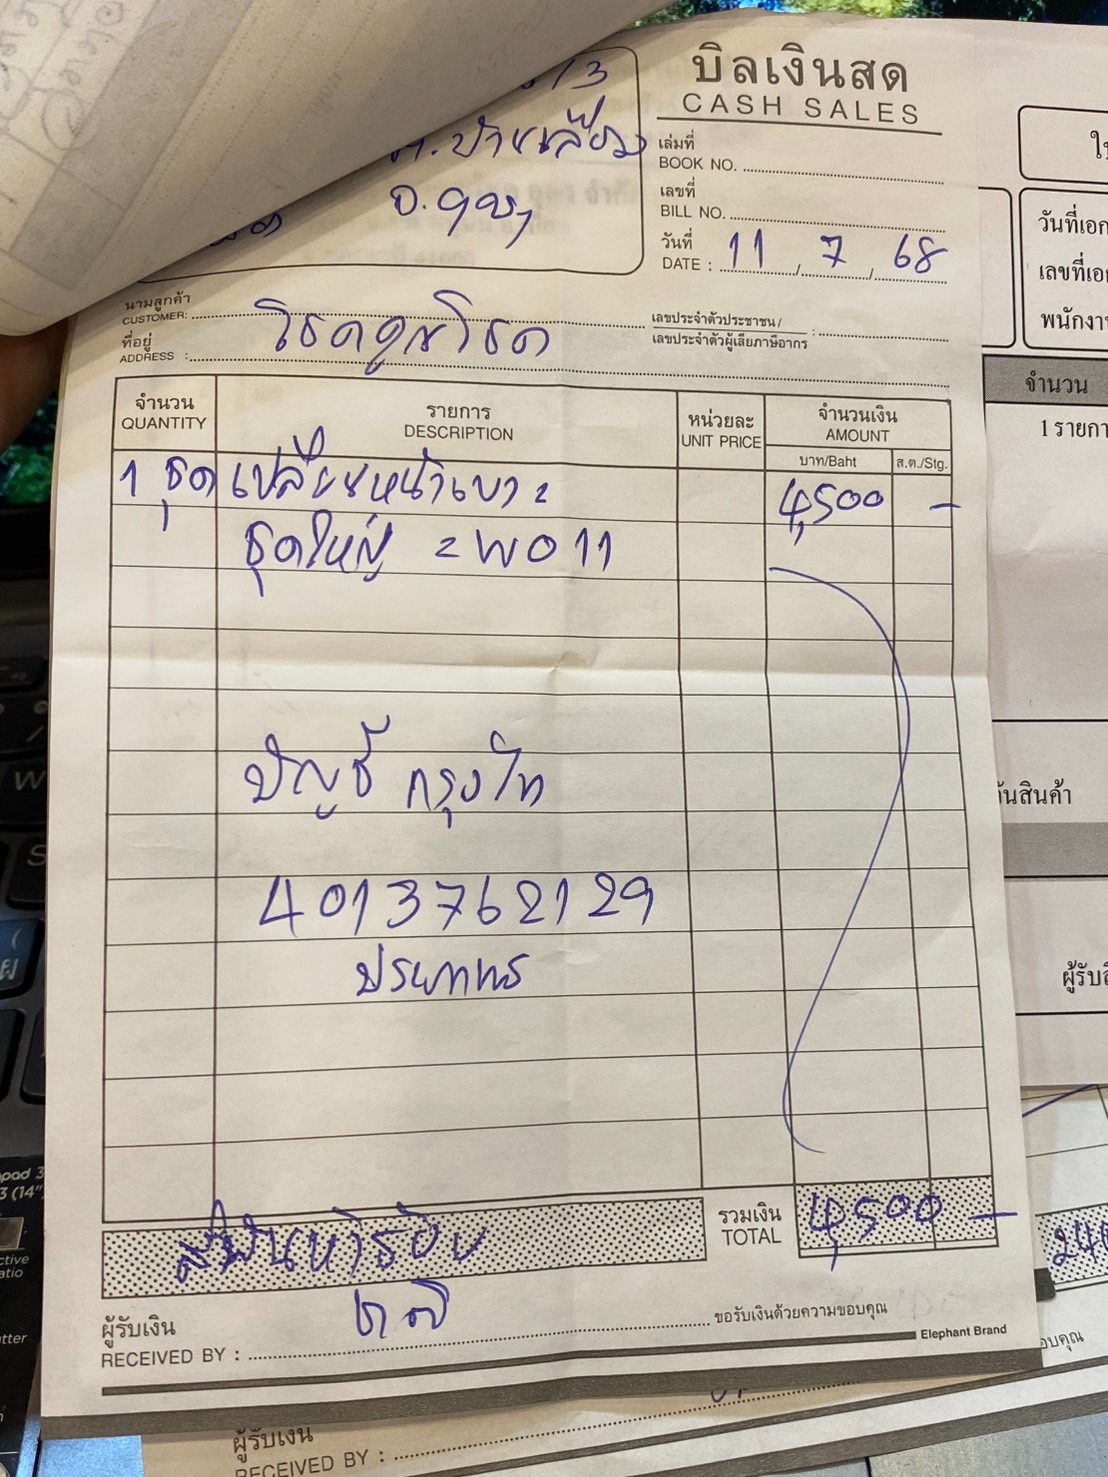 บิลเงินสด
CASH SALES
/3
ต.บ้านเลื่อม
จ.อุดร
เล่มที่
BOOK NO.
เลขที่
BILL NO.
วันที่
DATE : 11 / 7 / 68
นามลูกค้า
CUSTOMER: โชคคูณโชค
ที่อยู่
ADDRESS :
เลขประจำตัวประชาชน /
เลขประจำตัวผู้เสียภาษีอากร :
จำนวน
QUANTITY
รายการ
DESCRIPTION
หน่วยละ
UNIT PRICE
จำนวนเงิน
AMOUNT
บาท/Baht
ส.ต./Stg.
1 ชุด เปลี่ยนหน้าเบาะ 4,500 -
ชุดใหญ่ = WO11
บัญชี กรุงไท
4013762129
สี่พันห้าร้อย
รวมเงิน
TOTAL
4,500 -
ผู้รับเงิน
RECEIVED BY :
ขอรับเงินด้วยความขอบคุณ
Elephant Brand
วันที่เอก
เลขที่เอก
พนักงา
จำนวน
1 รายกา
ผู้รับสิ
อบคุณ
ผู้รับเงิน
RECEIVED BY :